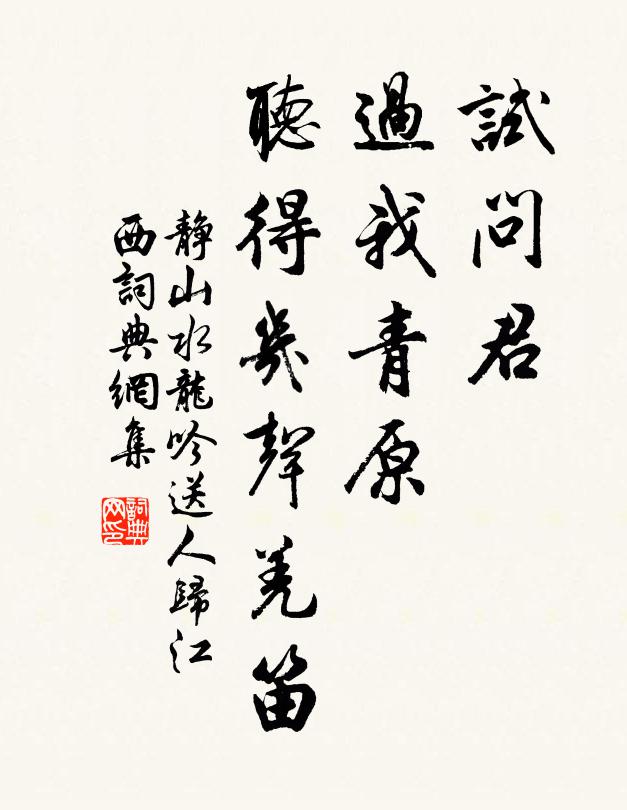 試問君
過我青原
聽得幾聲羌笛
靜山水龍吟送人歸江
西詞典網集
詞典
网印